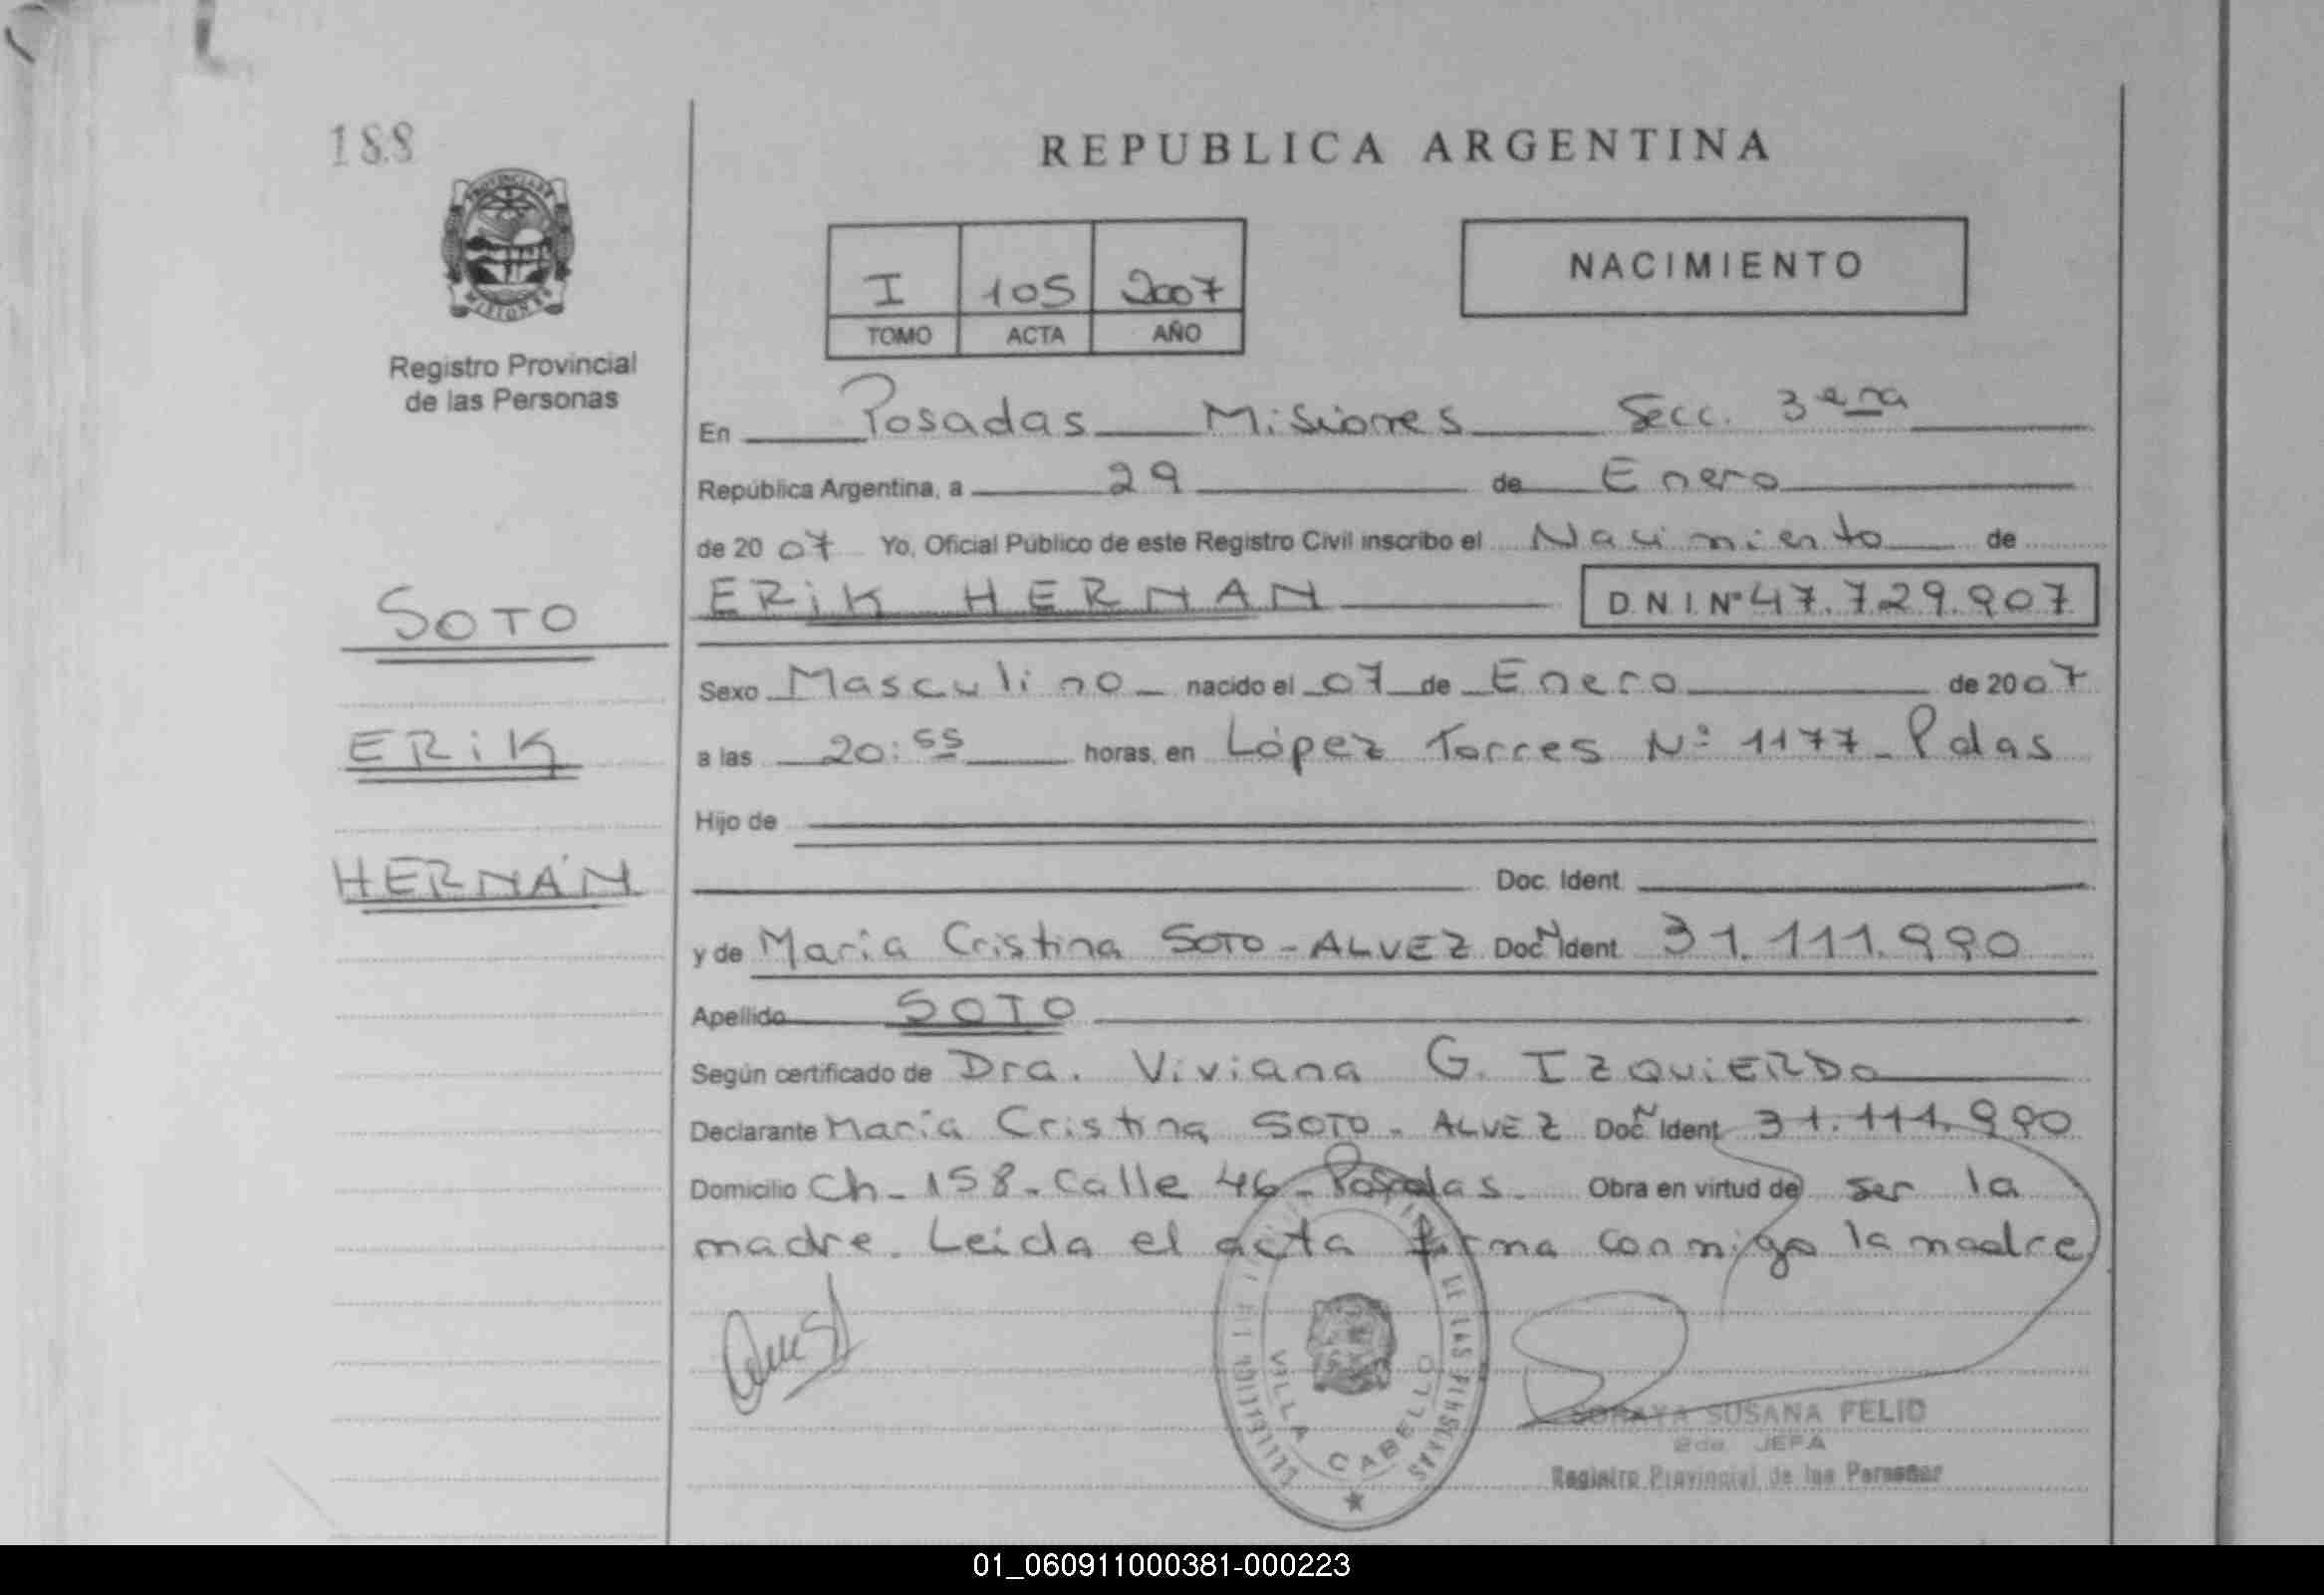 188
REPUBLICA ARGENTINA
PROVINCIA DE
MISIONES
NACIMIENTO
I 105 2007
TOMO ACTA AÑO
Registro Provincial
de las Personas
En Posadas Misiones Secc. 3era
República Argentina, a 29 de Enero
de 2007 Yo, Oficial Público de este Registro Civil inscribo el Nacimiento de
SOTO
ERiK HERNAN D.N.I. Nº 47.729.907
Sexo Masculino nacido el 07 de Enero de 2007
ERiK
a las 20:55 horas, en López Torres Nº 1177 - Pdas
Hijo de
HERNÁN
Doc. Ident.
y de María Cristina SOTO - ALVEZ Doc. N Ident. 31.111.990
Apellido SOTO
Según certificado de Dra. Viviana G. IZQUiERDO
Declarante María Cristina SOTO - ALVEZ Doc. N Ident. 31.111.990
Domicilio Ch - 158 - Calle 46 - Posadas. Obra en virtud de ser la
madre. Leida el acta firma conmigo la madre
DE LAS PERSONAS
VILLA CABELLO
SORAYA SUSANA FELID
2da JEFA
Registro Provincial de las Personas
01_060911000381-000223